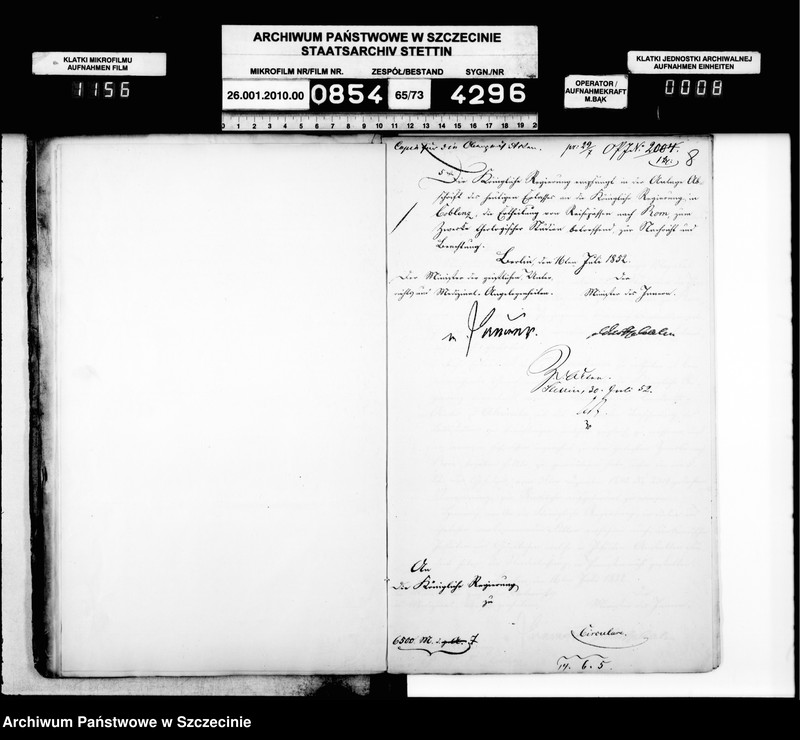 ARCHIWUM PAŃSTWOWE W SZCZECINIE
STAATSARCHIV STETTIN
MIKROFILM NR/FILM NR. ZESPÓŁ/BESTAND SYGN./NR
26.001.2010.00 0854 65/73 4296
KLATKI MIKROFILMU
AUFNAHMEN FILM
1156
OPERATOR /
AUFNAHMEKRAFT
M.BĄK
KLATKI JEDNOSTKI ARCHIWALNEJ
AUFNAHMEN EINHEITEN
0008
0 1 2 3 4 5 6 7 8 9 10 11 12 13 14 15 16 17 18 19 20
Copia für die Oberpräs. Acten. pr. 29/7 OPJ N: 2084.
8
Die Königliche Regierung empfängt in der Anlage Ab-
schrift des heutigen Erlasses an die Königliche Regierung in
Coblenz, die Ertheilung von Reisepässen nach Rom, zum
Zwecke theologischer Studien betreffend, zur Nachricht und
Beachtung.
Berlin, den 16ten Juli 1852.
Der Minister der geistlichen Unter- Der
richts und Medizinal-Angelegenheiten. Minister des Innern.
v. Raumer. v Westphalen
Z. d. Acten.
Stettin, 30. Juli 52.
An
Die Königliche Regierung
zu
6500. M. I.
Circulare.
19. 6. 5.
Archiwum Państwowe w Szczecinie